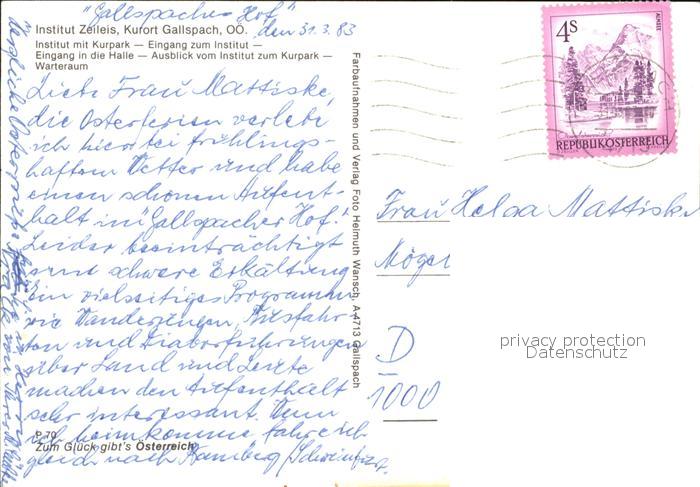 "Gallspacher Hof"
Institut Zeileis, Kurort Gallspach, OÖ. den 31.3.83
Institut mit Kurpark — Eingang zum Institut —
Eingang in die Halle — Ausblick vom Institut zum Kurpark —
Warteraum
Liebe Frau Mattiske,
die Osterferien verlebe
ich hier bei frühlings-
haftem Wetter und habe
einen schönen Aufent-
halt im "Gallspacher Hof".
Leider beeinträchtigt
schwere Erkältung
Ein vielseitiges Programm
wie Wanderungen, Ausfahr-
ten und Diavorführungen
über Land und Leute
machen den Aufenthalt
sehr interessant. Wenn
ich heimkomme fahre ich
gleich nach Bamberg/Schweinfurt.
P 70
Zum Glück gibt's Österreich
Herzliche Ostergrüße
Farbaufnahmen und Verlag Foto Helmuth Wansch, A-4713 Gallspach
4S
ALMSEE
REPUBLIK ÖSTERREICH
Frau Helga Mattiske
D
1000
privacy protection
Datenschutz